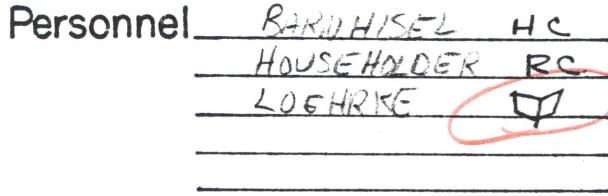 Personnel BARNHISEL HC
HOUSEHOLDER RC
LOEHRKE